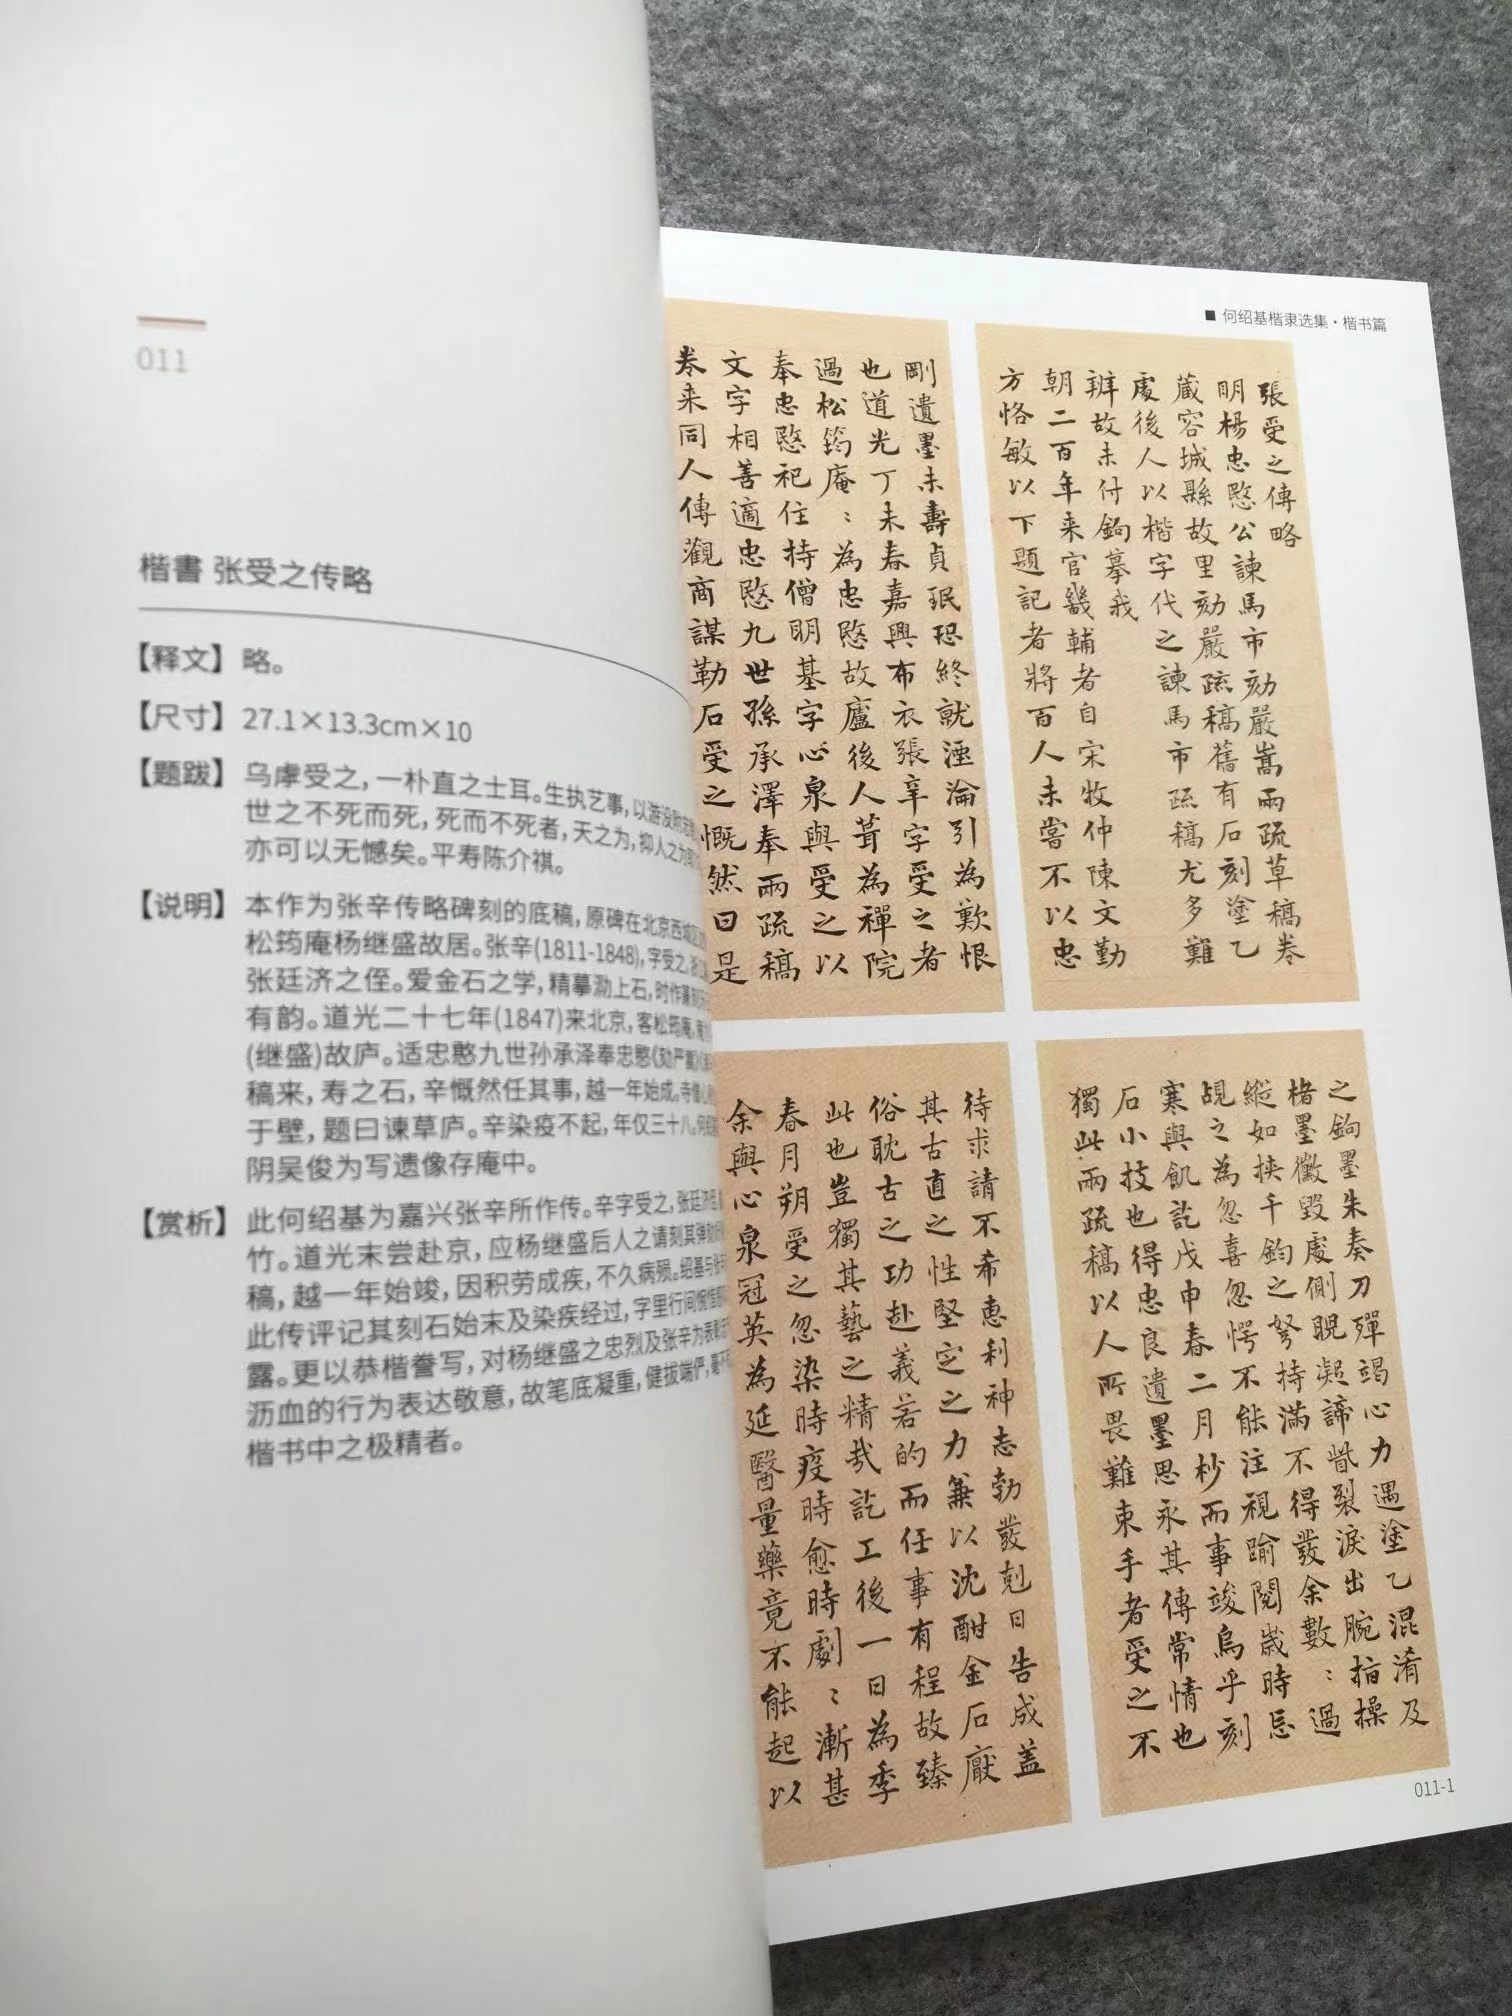 011
楷書 张受之传略
【释文】略。
【尺寸】27.1×13.3cm×10
【题跋】乌虖受之，一朴直之士耳。生执艺事，以游没
世之不死而死，死而不死者，天之为，抑人之为
亦可以无憾矣。平寿陈介祺。
【说明】本作为张辛传略碑刻的底稿，原碑在北京西城区
松筠庵杨继盛故居。张辛(1811-1848)，字受之，浙江
张廷济之侄。爱金石之学，精摹泐上石，时作篆刻
有韵。道光二十七年(1847)来北京，客松筠庵，
(继盛)故庐。适忠愍九世孙承泽奉忠愍《劾严嵩》
稿来，寿之石，辛慨然任其事，越一年始成。寺僧心
于壁，题曰谏草庐。辛染疫不起，年仅三十八。何绍
阴吴俊为写遗像存庵中。
【赏析】此何绍基为嘉兴张辛所作传。辛字受之，张廷济侄，
竹。道光末尝赴京，应杨继盛后人之请刻其弹劾
稿，越一年始竣，因积劳成疾，不久病殒。绍基与张
此传评记其刻石始末及染疾经过，字里行间惋惜
露。更以恭楷誊写，对杨继盛之忠烈及张辛为表彰
沥血的行为表达敬意，故笔底凝重，健拔端俨，毫不
楷书中之极精者。
■ 何绍基楷隶选集·楷书篇
張受之傳略
明楊忠愍公諫馬市劾嚴嵩兩疏草稿卷
蔵容城縣故里劾嚴疏稿舊有石刻塗乙
處後人以楷字代之諫馬市疏稿尤多難
辨故未付鉤摹我
朝二百年来官畿輔者自宋牧仲陳文勤
方恪敏以下題記者將百人未嘗不以忠
剛遺墨未壽貞珉恐終就湮淪引為歎恨
也道光丁未春嘉興布衣張辛字受之者
過松筠庵：為忠愍故廬後人葺為禪院
奉忠愍祀住持僧明基字心泉與受之以
文字相善適忠愍九世孫承澤奉兩疏稿
卷来同人傳觀商謀勒石受之慨然曰是
之鉤墨朱奏刀殫竭心力遇塗乙混淆及
楮墨黴毀處側睨凝諦眥裂淚出腕指操
縱如挾千鈞之弩持滿不得發余數：過
覘之為忽喜忽愕不能注視踰閱歲時忘
寒與飢訖戊申春二月杪而事竣烏乎刻
石小技也得忠良遺墨思永其傳常情也
獨此兩疏稿以人所畏難束手者受之不
待求請不希惠利神志勃發剋日告成蓋
其古直之性堅定之力兼以沈酣金石厭
俗耽古之功赴義若的而任事有程故臻
此也豈獨其藝之精哉訖工後一日為季
春月朔受之忽染時疫時愈時劇：漸甚
余與心泉冠英為延醫量藥竟不能起以
011-1